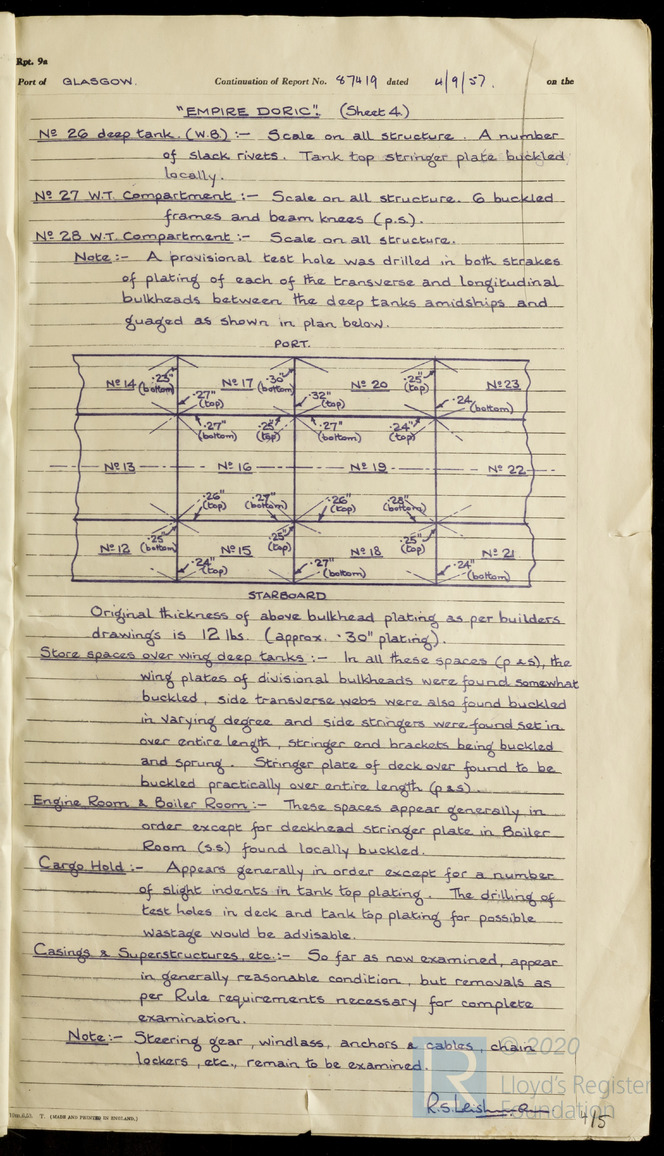 Rpt. 9a
Port of GLASGOW. Continuation of Report No. 87419 dated 4/9/57. on the
"EMPIRE DORIC". (Sheet 4.)
No 26 deep tank. (W.B.) :- Scale on all structure. A number
of slack rivets. Tank top stringer plate buckled
locally.
No 27 W.T. Compartment :- Scale on all structure. 6 buckled
frames and beam knees (p.s.).
No 28 W.T. Compartment :- Scale on all structure.
Note :- A provisional test hole was drilled in both strakes
of plating of each of the transverse and longitudinal
bulkheads between the deep tanks amidships and
guaged as shown in plan below.
PORT.
No 14 .23" (bottom) No 17 .30" (bottom) No 20 .25" (top) No 23
.27" (top) .32" (top) .24 (bottom)
.27" (bottom) .25" (top) .27" (bottom) .24" (top)
No 13 No 16 No 19 No 22
.26" (top) .27" (bottom) .26" (top) .28" (bottom)
No 12 .25" (bottom) No 15 .25" (top) No 18 .25" (top) No 21
.24" (top) .27" (bottom) .24" (bottom)
STARBOARD
Original thickness of above bulkhead plating as per builders
drawings is 12 lbs. (approx. .30" plating).
Store spaces over wing deep tanks :- In all these spaces (p &s), the
wing plates of divisional bulkheads were found somewhat
buckled, side transverse webs were also found buckled
in varying degree and side stringers were found set in
over entire length, stringer end brackets being buckled
and sprung. Stringer plate of deck over found to be
buckled practically over entire length (p &s).
Engine Room & Boiler Room :- These spaces appear generally in
order except for deckhead stringer plate in Boiler
Room (s.s) found locally buckled.
Cargo Hold :- Appears generally in order except for a number
of slight indents in tank top plating. The drilling of
test holes in deck and tank top plating for possible
wastage would be advisable.
Casings & Superstructures, etc :- So far as now examined, appear
in generally reasonable condition, but removals as
per Rule requirements necessary for complete
examination.
Note :- Steering gear, windlass, anchors & cables, chain
lockers, etc., remain to be examined.
© 2020
Lloyd's Register
Foundation
R.S. Leishman
4/5
T. (MADE AND PRINTED IN ENGLAND.)